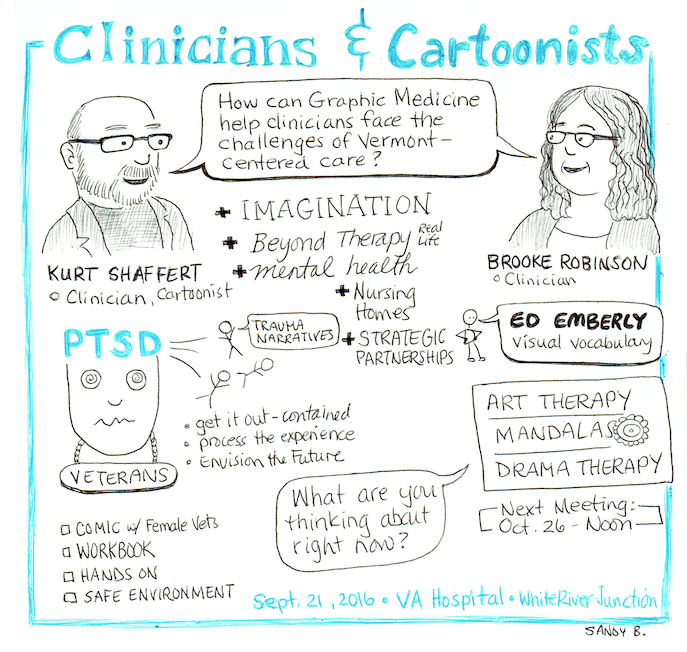 Clinicians & Cartoonists
How can Graphic Medicine
help clinicians face the
challenges of Vermont-
centered care?
KURT SHAFFERT
Clinician, Cartoonist
BROOKE ROBINSON
Clinician
+ IMAGINATION
+ Beyond Therapy Real
Life
+ mental health
+ Nursing
Homes
+ STRATEGIC
PARTNERSHIPS
ED EMBERLY
Visual Vocabulary
PTSD
TRAUMA
NARRATIVES
• get it out-contained
• process the experience
• Envision the Future
VETERANS
ART THERAPY
MANDALAS
DRAMA THERAPY
Next Meeting:
Oct. 26 - Noon
What are you
thinking about
right now?
COMIC w/ Female Vets
WORKBOOK
HANDS ON
SAFE ENVIRONMENT
Sept. 21, 2016 • VA Hospital • White River Junction
SANDY B.